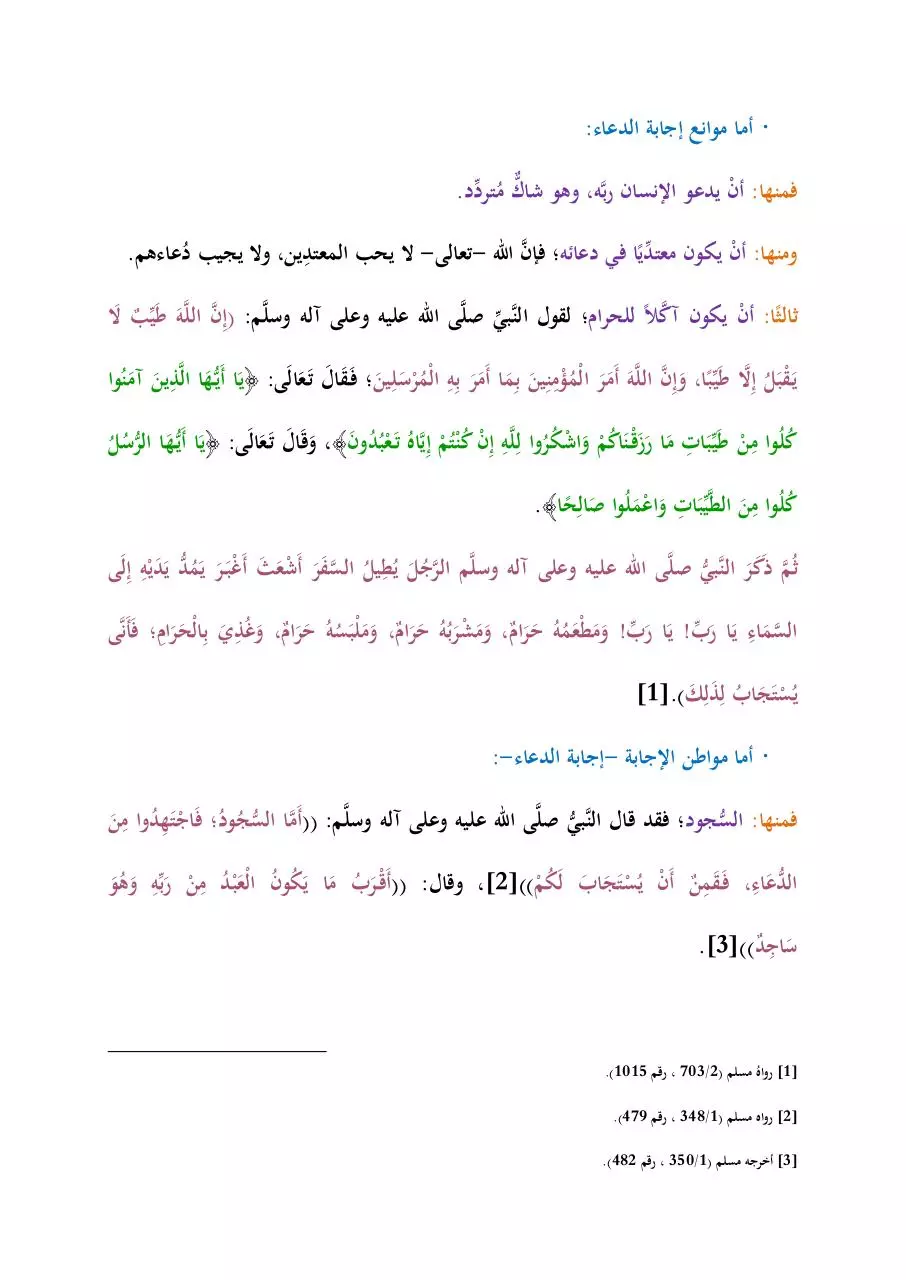 · أما موانع إجابة الدعاء:
فمنها: أنْ يدعو الإنسان ربَّه، وهو شاكٌّ مُتردِّد.
ومنها: أنْ يكون معتدِّيًا في دعائه؛ فإنَّ الله –تعالى– لا يحب المعتدِين، ولا يجيب دُعاءهم.
ثالثًا: أنْ يكون آكَّلاً للحرام؛ لقول النَّبيِّ صلَّى الله عليه وعلى آله وسلَّم: (إِنَّ اللَّهَ طَيِّبٌ لَا
يَقْبَلُ إِلَّا طَيِّبًا، وَإِنَّ اللَّهَ أَمَرَ الْمُؤْمِنِينَ بِمَا أَمَرَ بِهِ الْمُرْسَلِينَ؛ فَقَالَ تَعَالَى: ﴿يَا أَيُّهَا الَّذِينَ آمَنُوا
كُلُوا مِنْ طَيِّبَاتِ مَا رَزَقْنَاكُمْ وَاشْكُرُوا لِلَّهِ إِنْ كُنْتُمْ إِيَّاهُ تَعْبُدُونَ﴾، وَقَالَ تَعَالَى: ﴿يَا أَيُّهَا الرُّسُلُ
كُلُوا مِنَ الطَّيِّبَاتِ وَاعْمَلُوا صَالِحًا﴾.
ثُمَّ ذَكَرَ النَّبيُّ صلَّى الله عليه وعلى آله وسلَّم الرَّجُلَ يُطِيلُ السَّفَرَ أَشْعَثَ أَغْبَرَ يَمُدُّ يَدَيْهِ إِلَى
السَّمَاءِ يَا رَبِّ! يَا رَبِّ! وَمَطْعَمُهُ حَرَامٌ، وَمَشْرَبُهُ حَرَامٌ، وَمَلْبَسُهُ حَرَامٌ، وَغُذِيَ بِالْحَرَامِ؛ فَأَنَّى
يُسْتَجَابُ لِذَلِكَ).[1]
· أما مواطن الإجابة –إجابة الدعاء–:
فمنها: السُّجود؛ فقد قال النَّبيُّ صلَّى الله عليه وعلى آله وسلَّم: ((أَمَّا السُّجُودُ؛ فَاجْتَهِدُوا مِنَ
الدُّعَاءِ، فَقَمِنٌ أَنْ يُسْتَجَابَ لَكُمْ))[2]، وقال: ((أَقْرَبُ مَا يَكُونُ الْعَبْدُ مِنْ رَبِّهِ وَهُوَ
سَاجِدٌ))[3].
[1] رواهُ مسلم (703/2 ، رقم 1015).
[2] رواه مسلم (348/1 ، رقم 479).
[3] أخرجه مسلم (350/1 ، رقم 482).